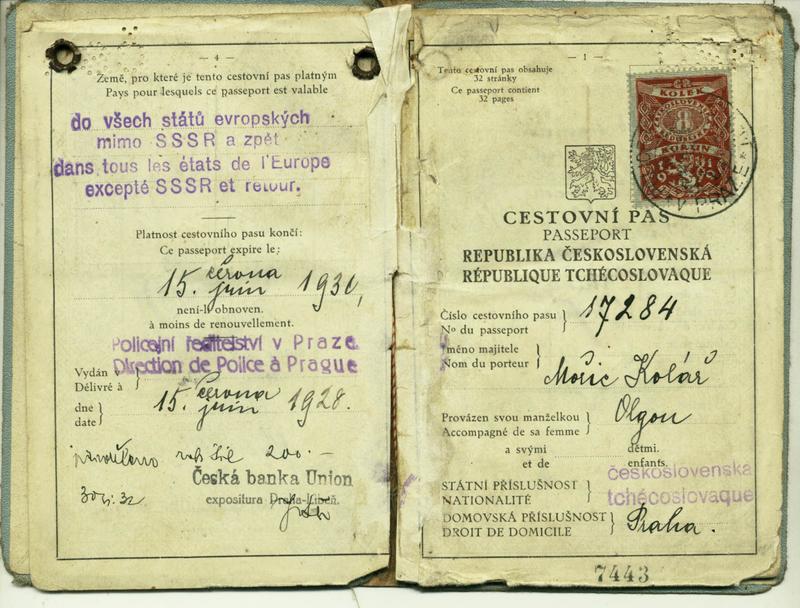 — 4 —
Země, pro které je tento cestovní pas platným
Pays pour lesquels ce passeport est valable
do všech států evropských
mimo SSSR a zpět
dans tous les états de l'Europe
excepté SSSR et retour.
Platnost cestovního pasu končí:
Ce passeport expire le:
15. června
juin 1930,
není-li obnoven.
à moins de renouvellement.
Policejní ředitelství v Praze.
Direction de Police à Prague
Vydán v
Délivré à
dne
date
15. června
juin 1928.
200.-
Česká banka Union
expositura Praha-Libeň.
— 1 —
Tento cestovní pas obsahuje
32 stránky
Ce passeport contient
32 pages
KOLEK
8
KORUN
V PRAZE
CESTOVNÍ PAS
PASSEPORT
REPUBLIKA ČESKOSLOVENSKÁ
RÉPUBLIQUE TCHÉCOSLOVAQUE
Číslo cestovního pasu
No du passeport
17284
Jméno majitele
Nom du porteur
Mořic Kolář
Provázen svou manželkou
Accompagné de sa femme
Olgou
a svými dětmi.
et de enfants.
STÁTNÍ PŘÍSLUŠNOST
NATIONALITÉ
československa
tchécoslovaque
DOMOVSKÁ PŘÍSLUŠNOST
DROIT DE DOMICILE
Praha.
7443